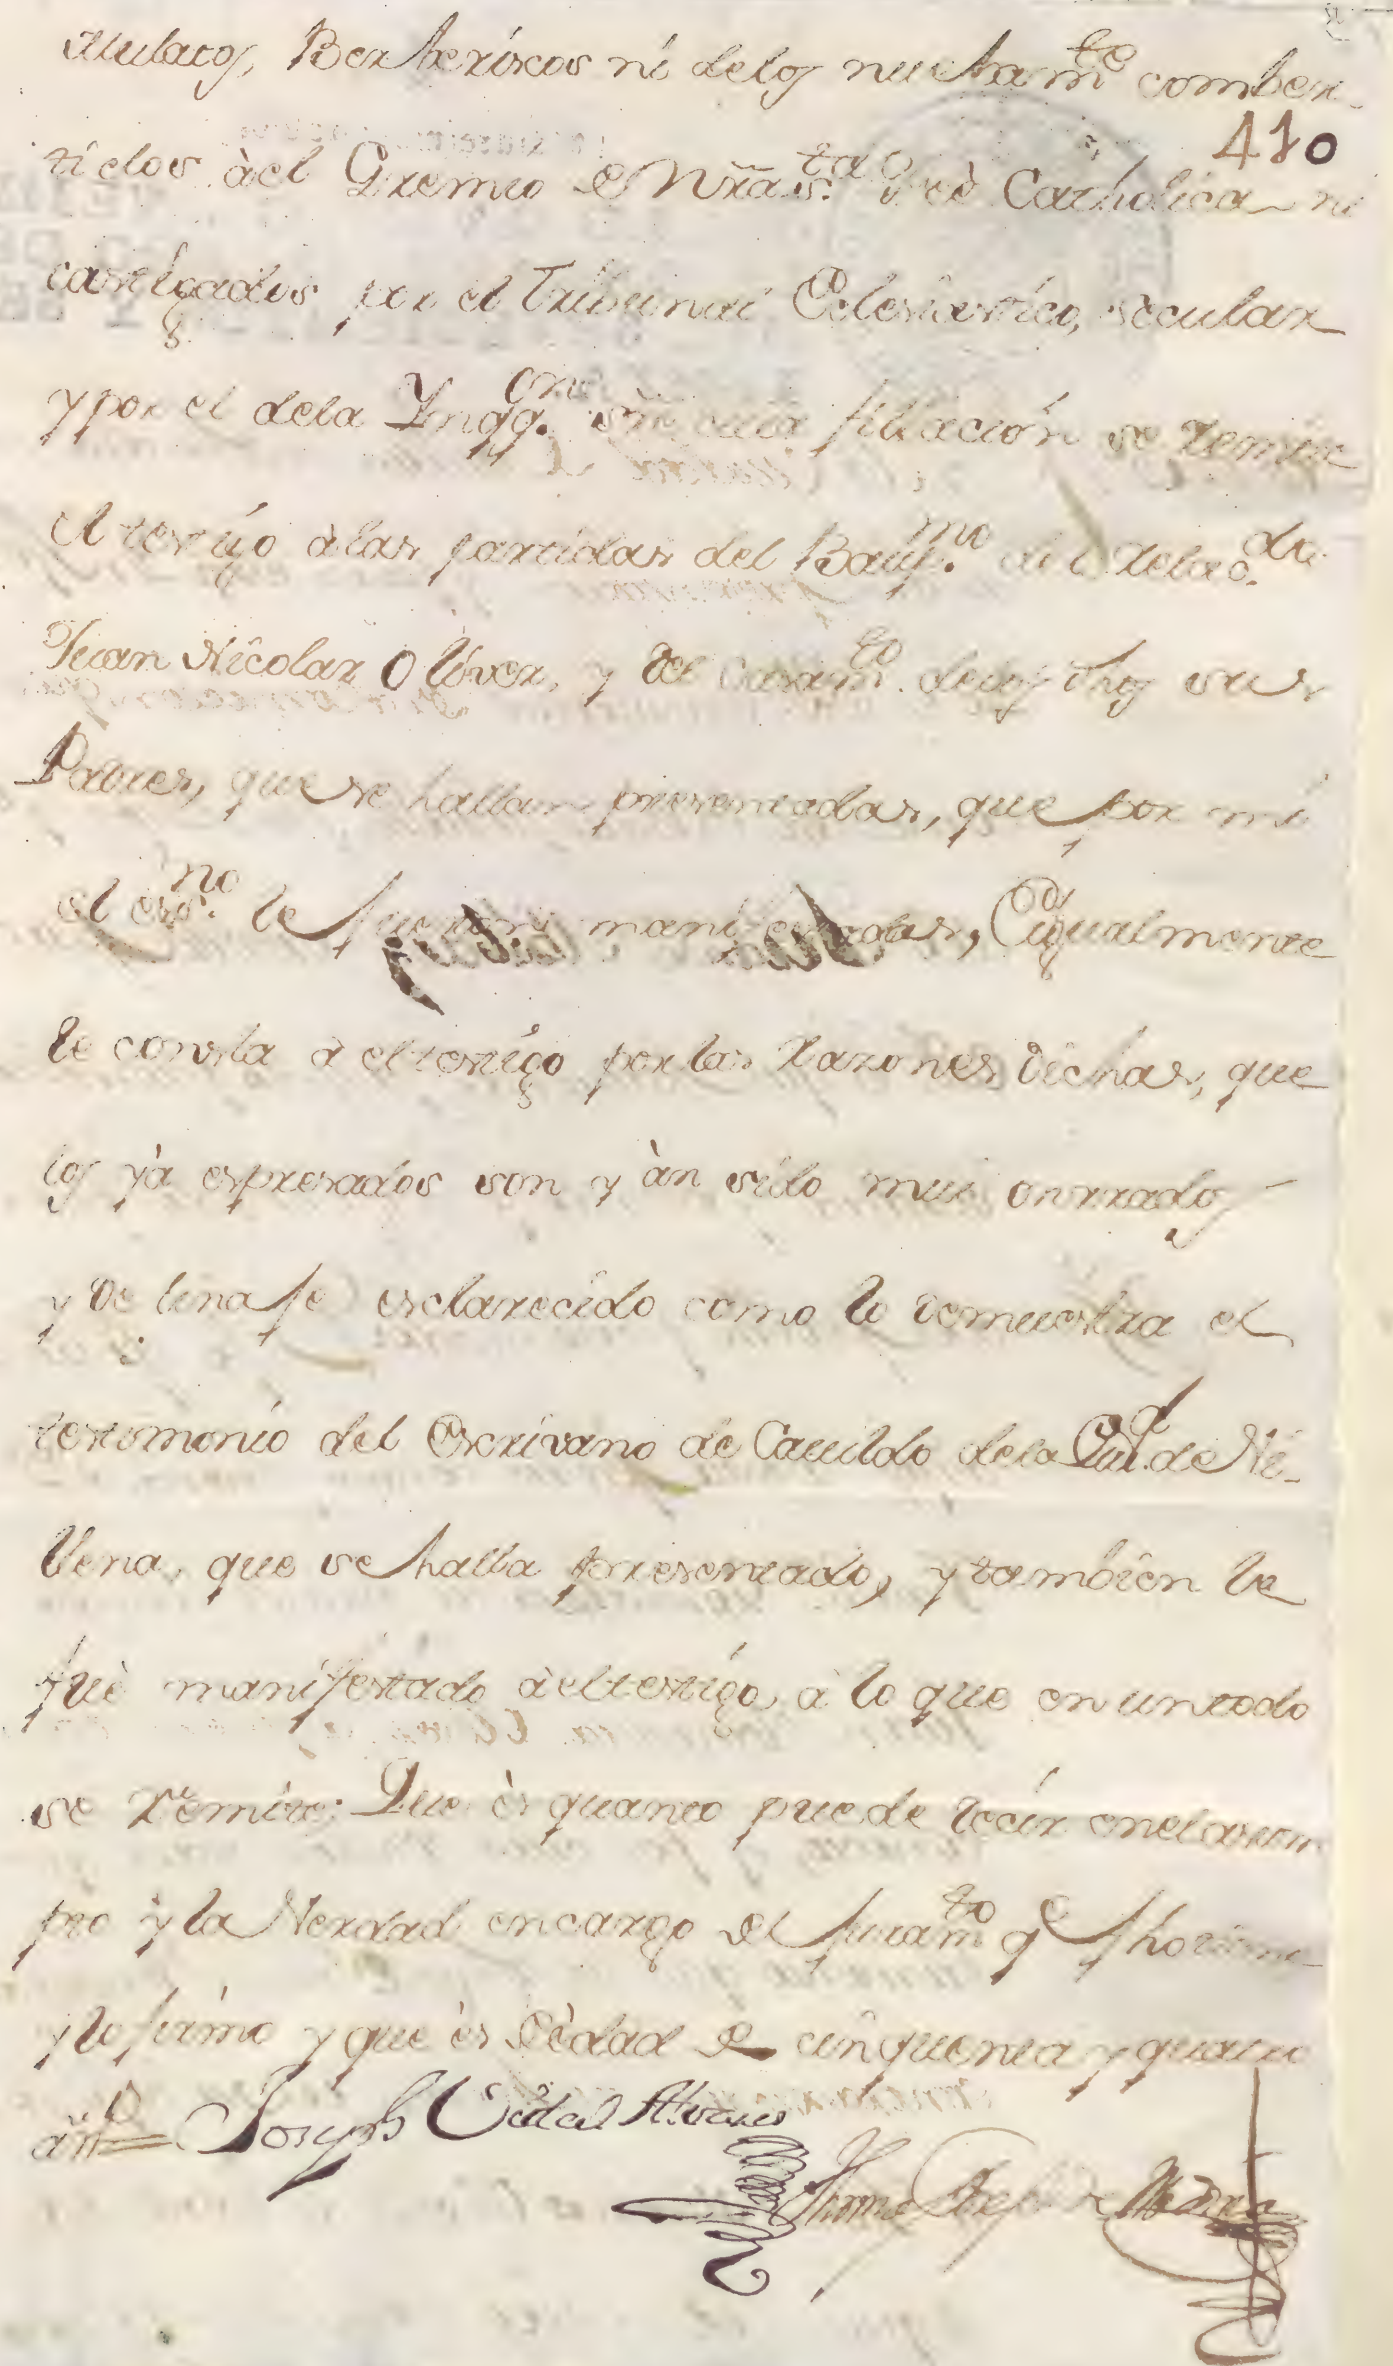 Mulatos, Berberiscos ni delos nuebam.te comber-
410
tidos àel Gremio de Nrã s.ta feè Catholica ni
castigados por el tribunal Eclesiastico, secular
y por el dela Ynqq.on sre cuia filiación se remite
el testigo àlas partidas del Baup.mo del relac.do
Juan Nicolas Oliver, y del casam.to delos dhos sus
Padres, que se hallan presentadas, que por mi
el ess.no le fueron manifestadas, Ygualmente
le consta à el testigo por las razones dichas, que
los yà espresados son y àn sido mui onrrados
y de linaje esclarecido como lo demuestra el
testimonio del Escrivano de Cavildo dela Ciu.d de Vi-
llena, que se halla presentado, y tambien le
fuè manifestado àel testigo, à lo que en un todo
se remite: Que ès quanto puede decir en el asum
pto y la Verdad encargo del juram.to q.e fho tiene
y lo firmò y que ès de èdad de cinquenta y quatro
añ.o = Joseph Vidal Alvarez
Thoma Joseph de Medina